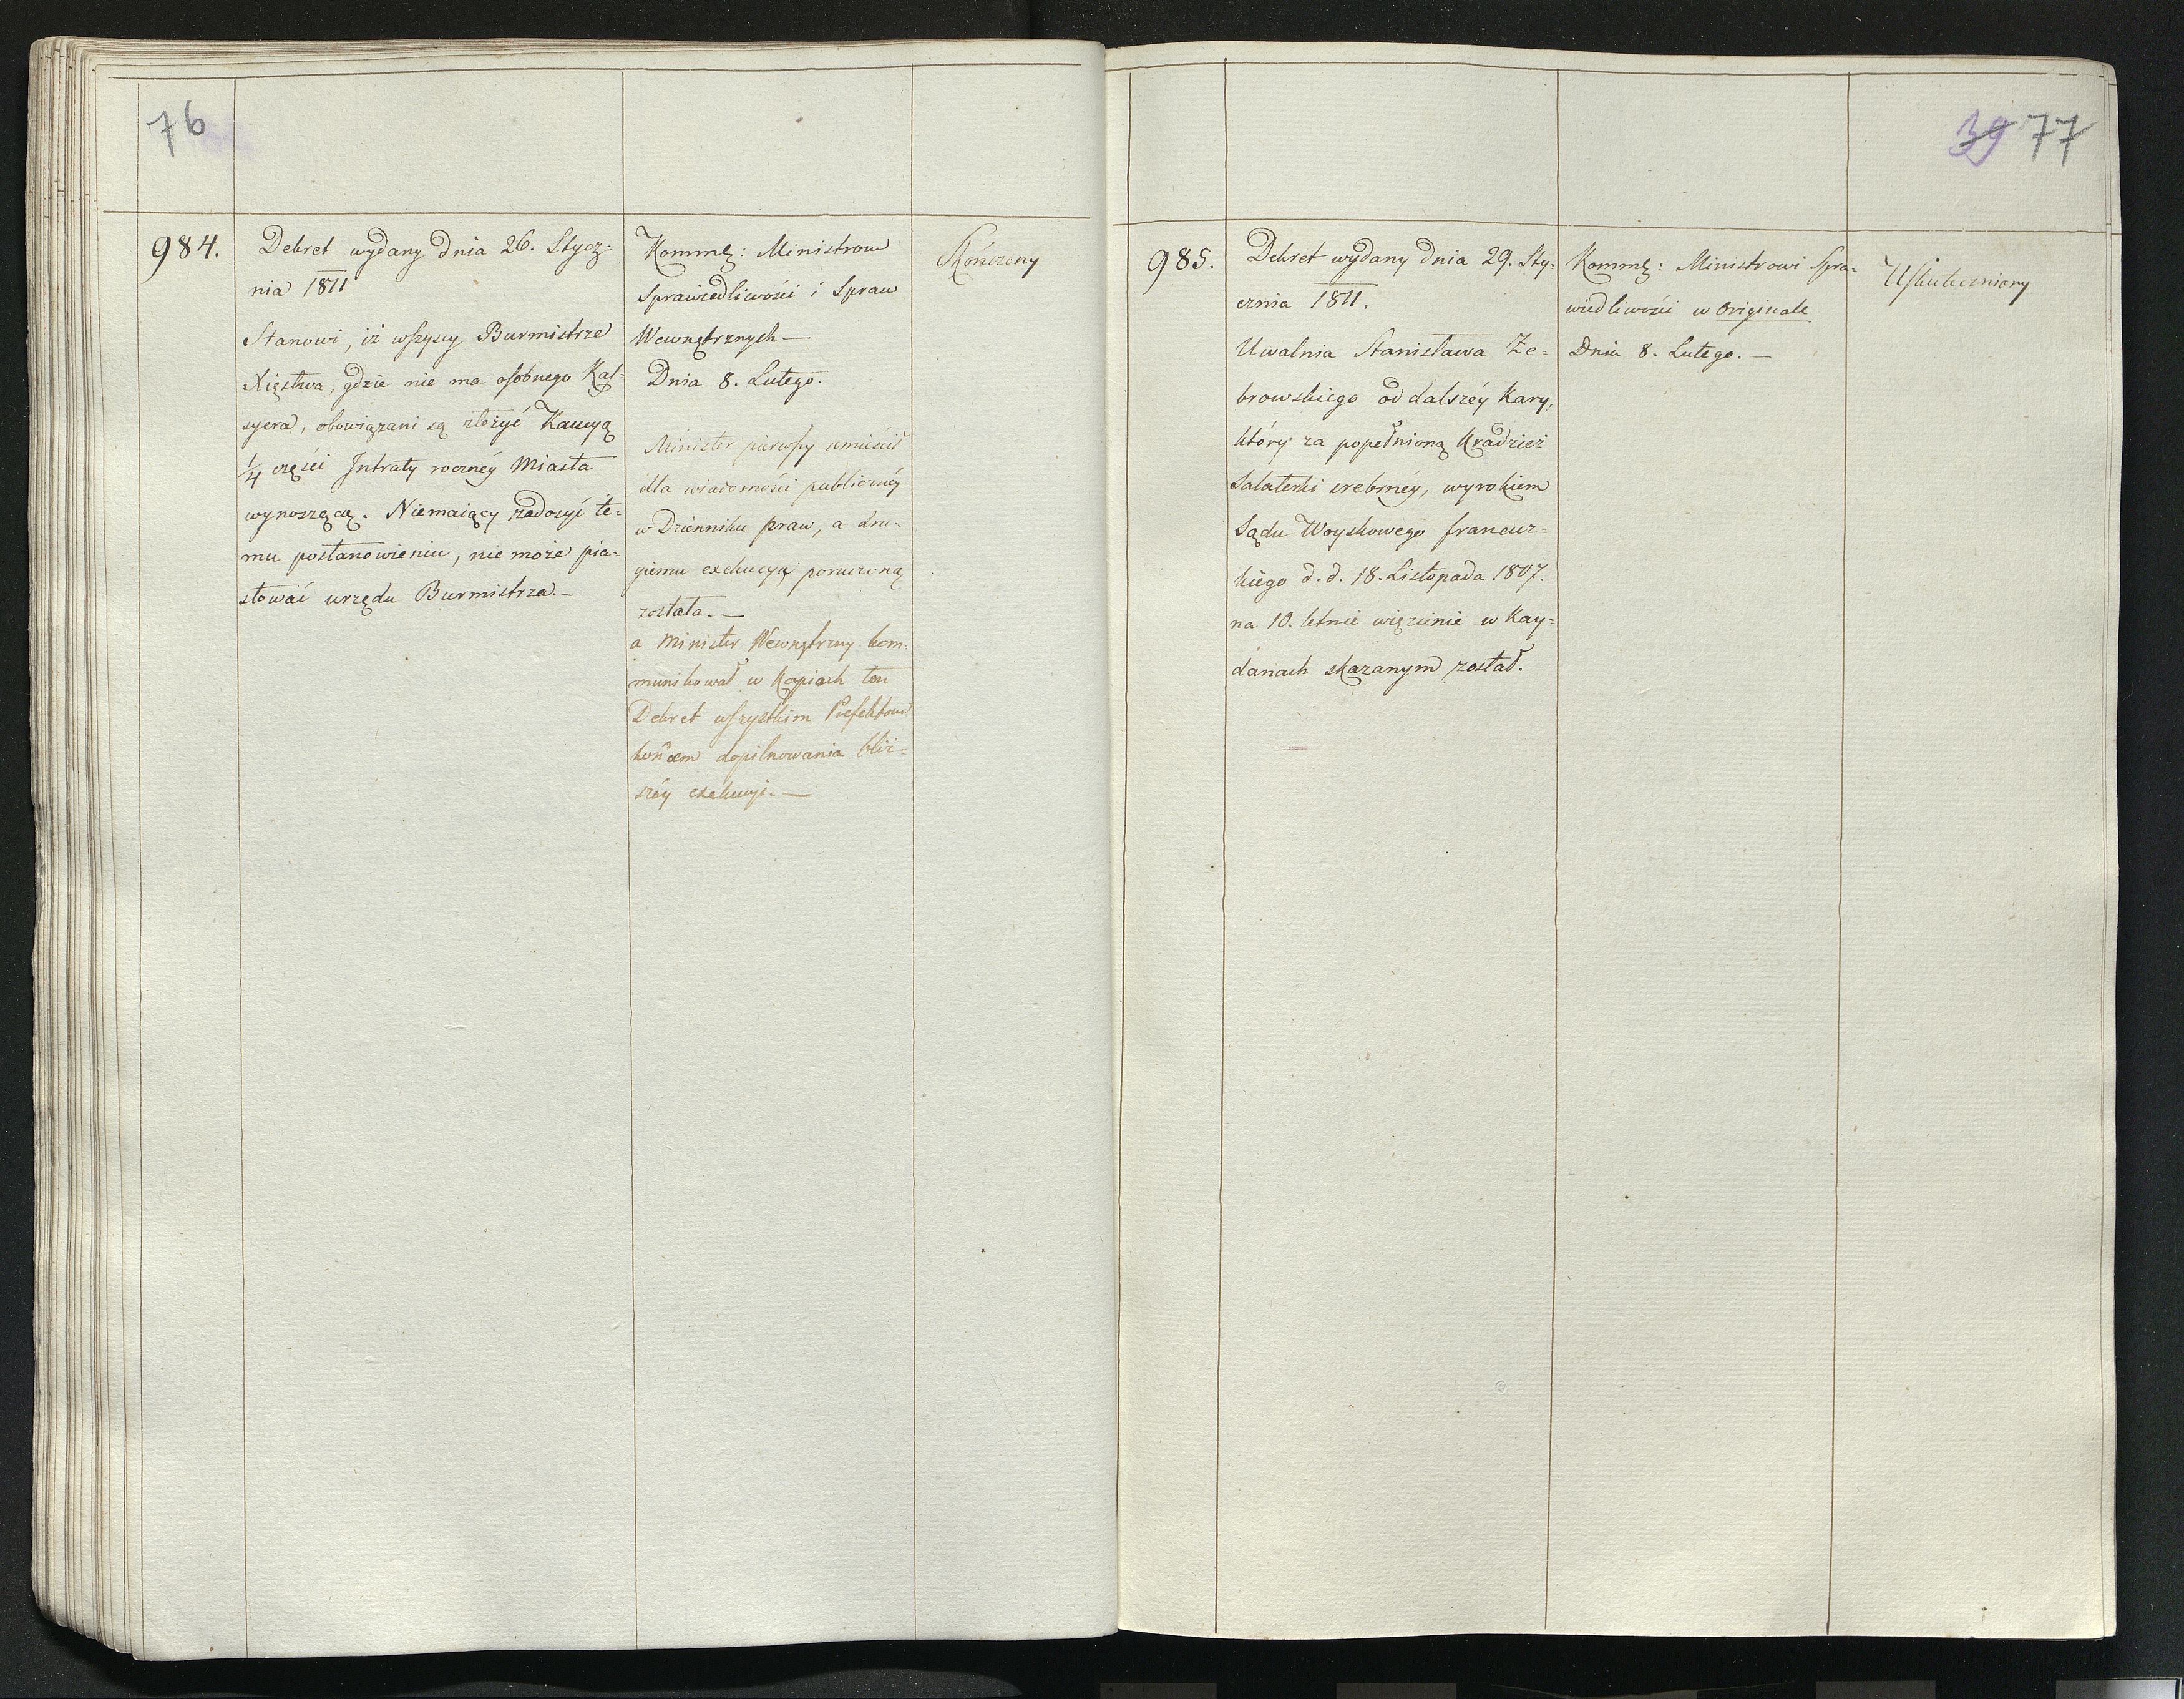 76
984.
Dekret wydany dnia 26. Stycz=
nia 1811
Stanowi, iż wszyscy Burmistrze
Xięstwa, gdzie nie ma osobnego Kas=
syera, obowiązani są złożyć Kaucyą
1/4 części Intraty rocznéy Miasta
wynoszącą. Niemaiący zadosyć te=
mu postanowieniu, nie może pia=
stować urzędu Burmistrza.—
Kommk: Ministrom
Sprawiedliwości i Spraw
Wewnętrznych—
Dnia 8. Lutego.
Minister pierwszy umieścił
dla wiadomości publicznéy
w Dzienniku praw, a dru=
giemu exekucya poruczoną
została.—
a Minister Wewnętrzny kom=
munikował w Kopiach ten
Dekret wszystkim Prefektom
końcem dopilnowania bliż=
széy exekucyi.—
Skończony
39 77
985.
Dekret wydany dnia 29. Sty=
cznia 1811.
Uwalnia Stanisława Że=
browskiego od dalszéy Kary,
który za popełnioną Kradzież
Salaterki srebrnéy, wyrokiem
Sądu Woyskowego francuz=
kiego d. d. 18. Listopada 1807.
na 10. letnie więzienie w Kay=
danach skazanym został.
Kommk: Ministrowi Spra=
wiedliwości w Originale
Dnia 8. Lutego.—
Uskuteczniony